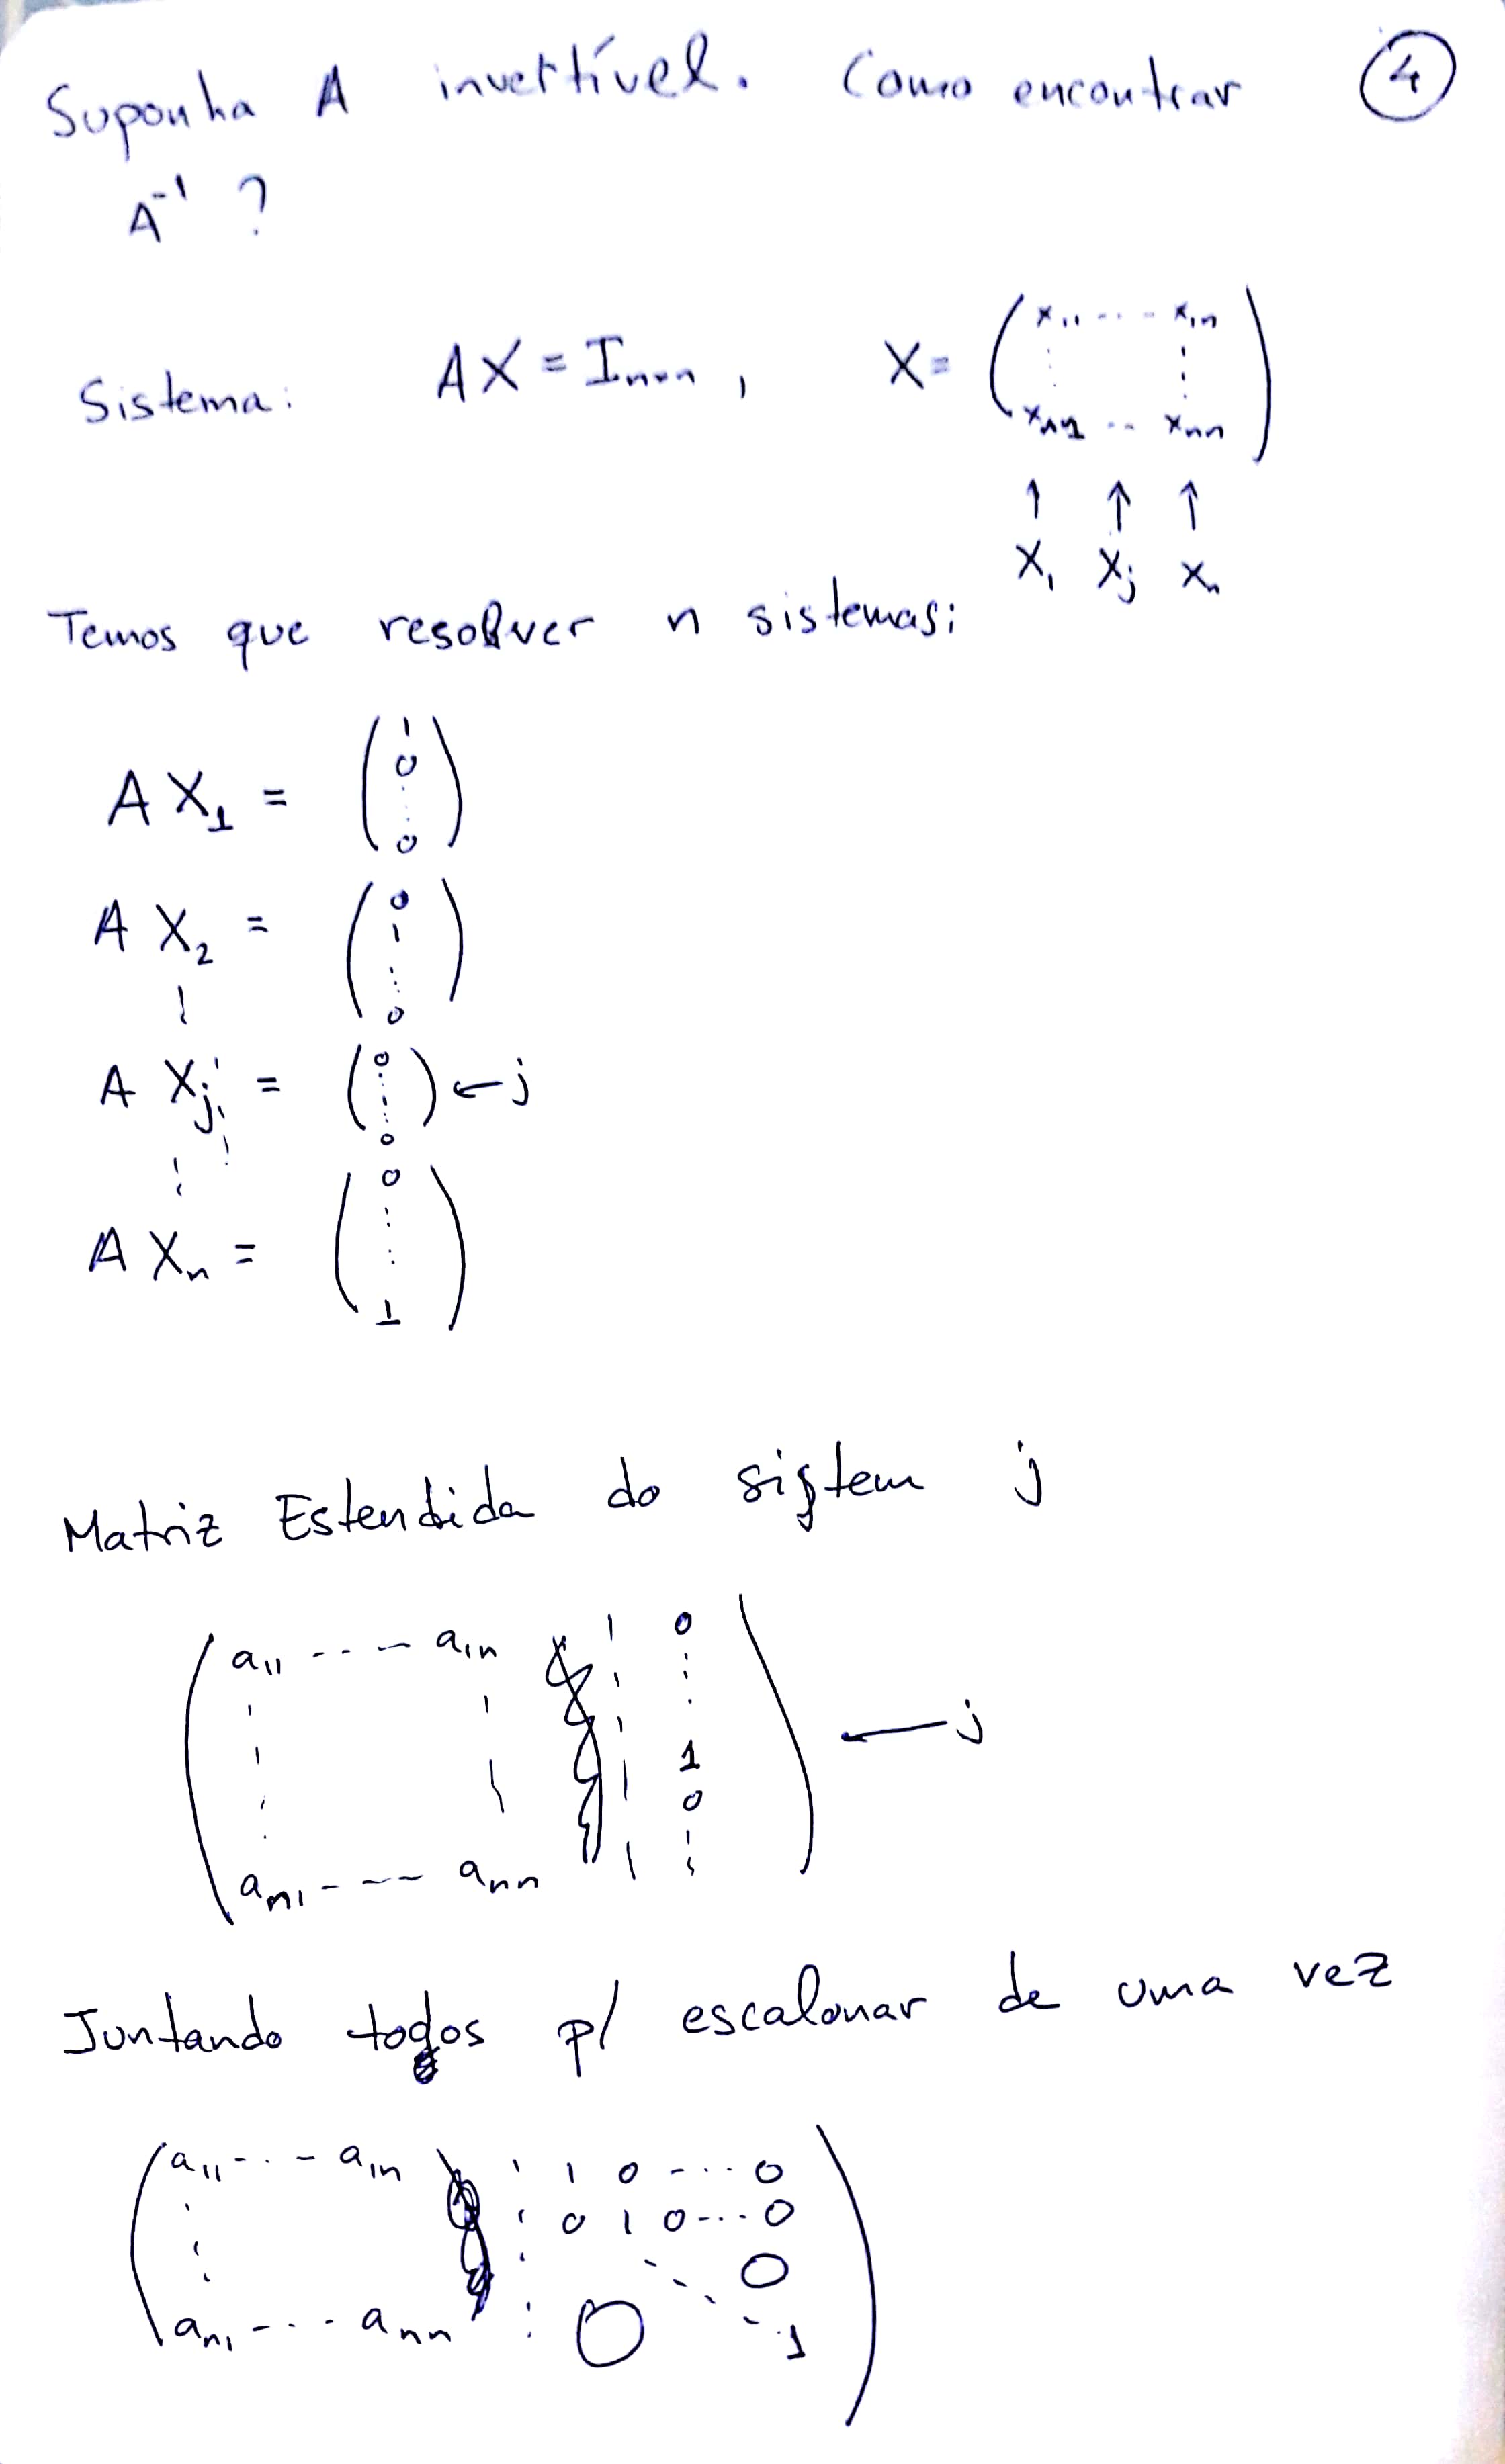 Suponha A invertível. Como encontrar 4
A⁻¹ ?
Sistema: AX = Iₙₓₙ , X = ( x₁₁ ... x₁ₙ
⋮ ⋮
xₙ₁ .. xₙₙ )
↑ ↑ ↑
X₁ Xⱼ Xₙ
Temos que resolver n sistemas:
A X₁ = ( 1 0 ⋮ 0 )
A X₂ = ( 0 1 ⋮ 0 )
⋮
A Xⱼ = ( 0 ⋮ 1 ⋮ 0 ) ← j
⋮
A Xₙ = ( 0 ⋮ 1 )
Matriz Estendida do sistem j
( a₁₁ ---- a₁ₙ | 0
⋮ ⋮ | ⋮
⋮ ⋮ | 1 ← j
⋮ ⋮ | 0
aₙ₁ ---- aₙₙ | ⋮ )
Juntando todos p/ escalonar de uma vez
( a₁₁ -..- a₁ₙ ⋮ 1 0 -... 0
⋮ ⋮ 0 1 0 -... 0
⋮ ⋮ ⋱ 0
aₙ₁ -..- aₙₙ ⋮ 0 1 )